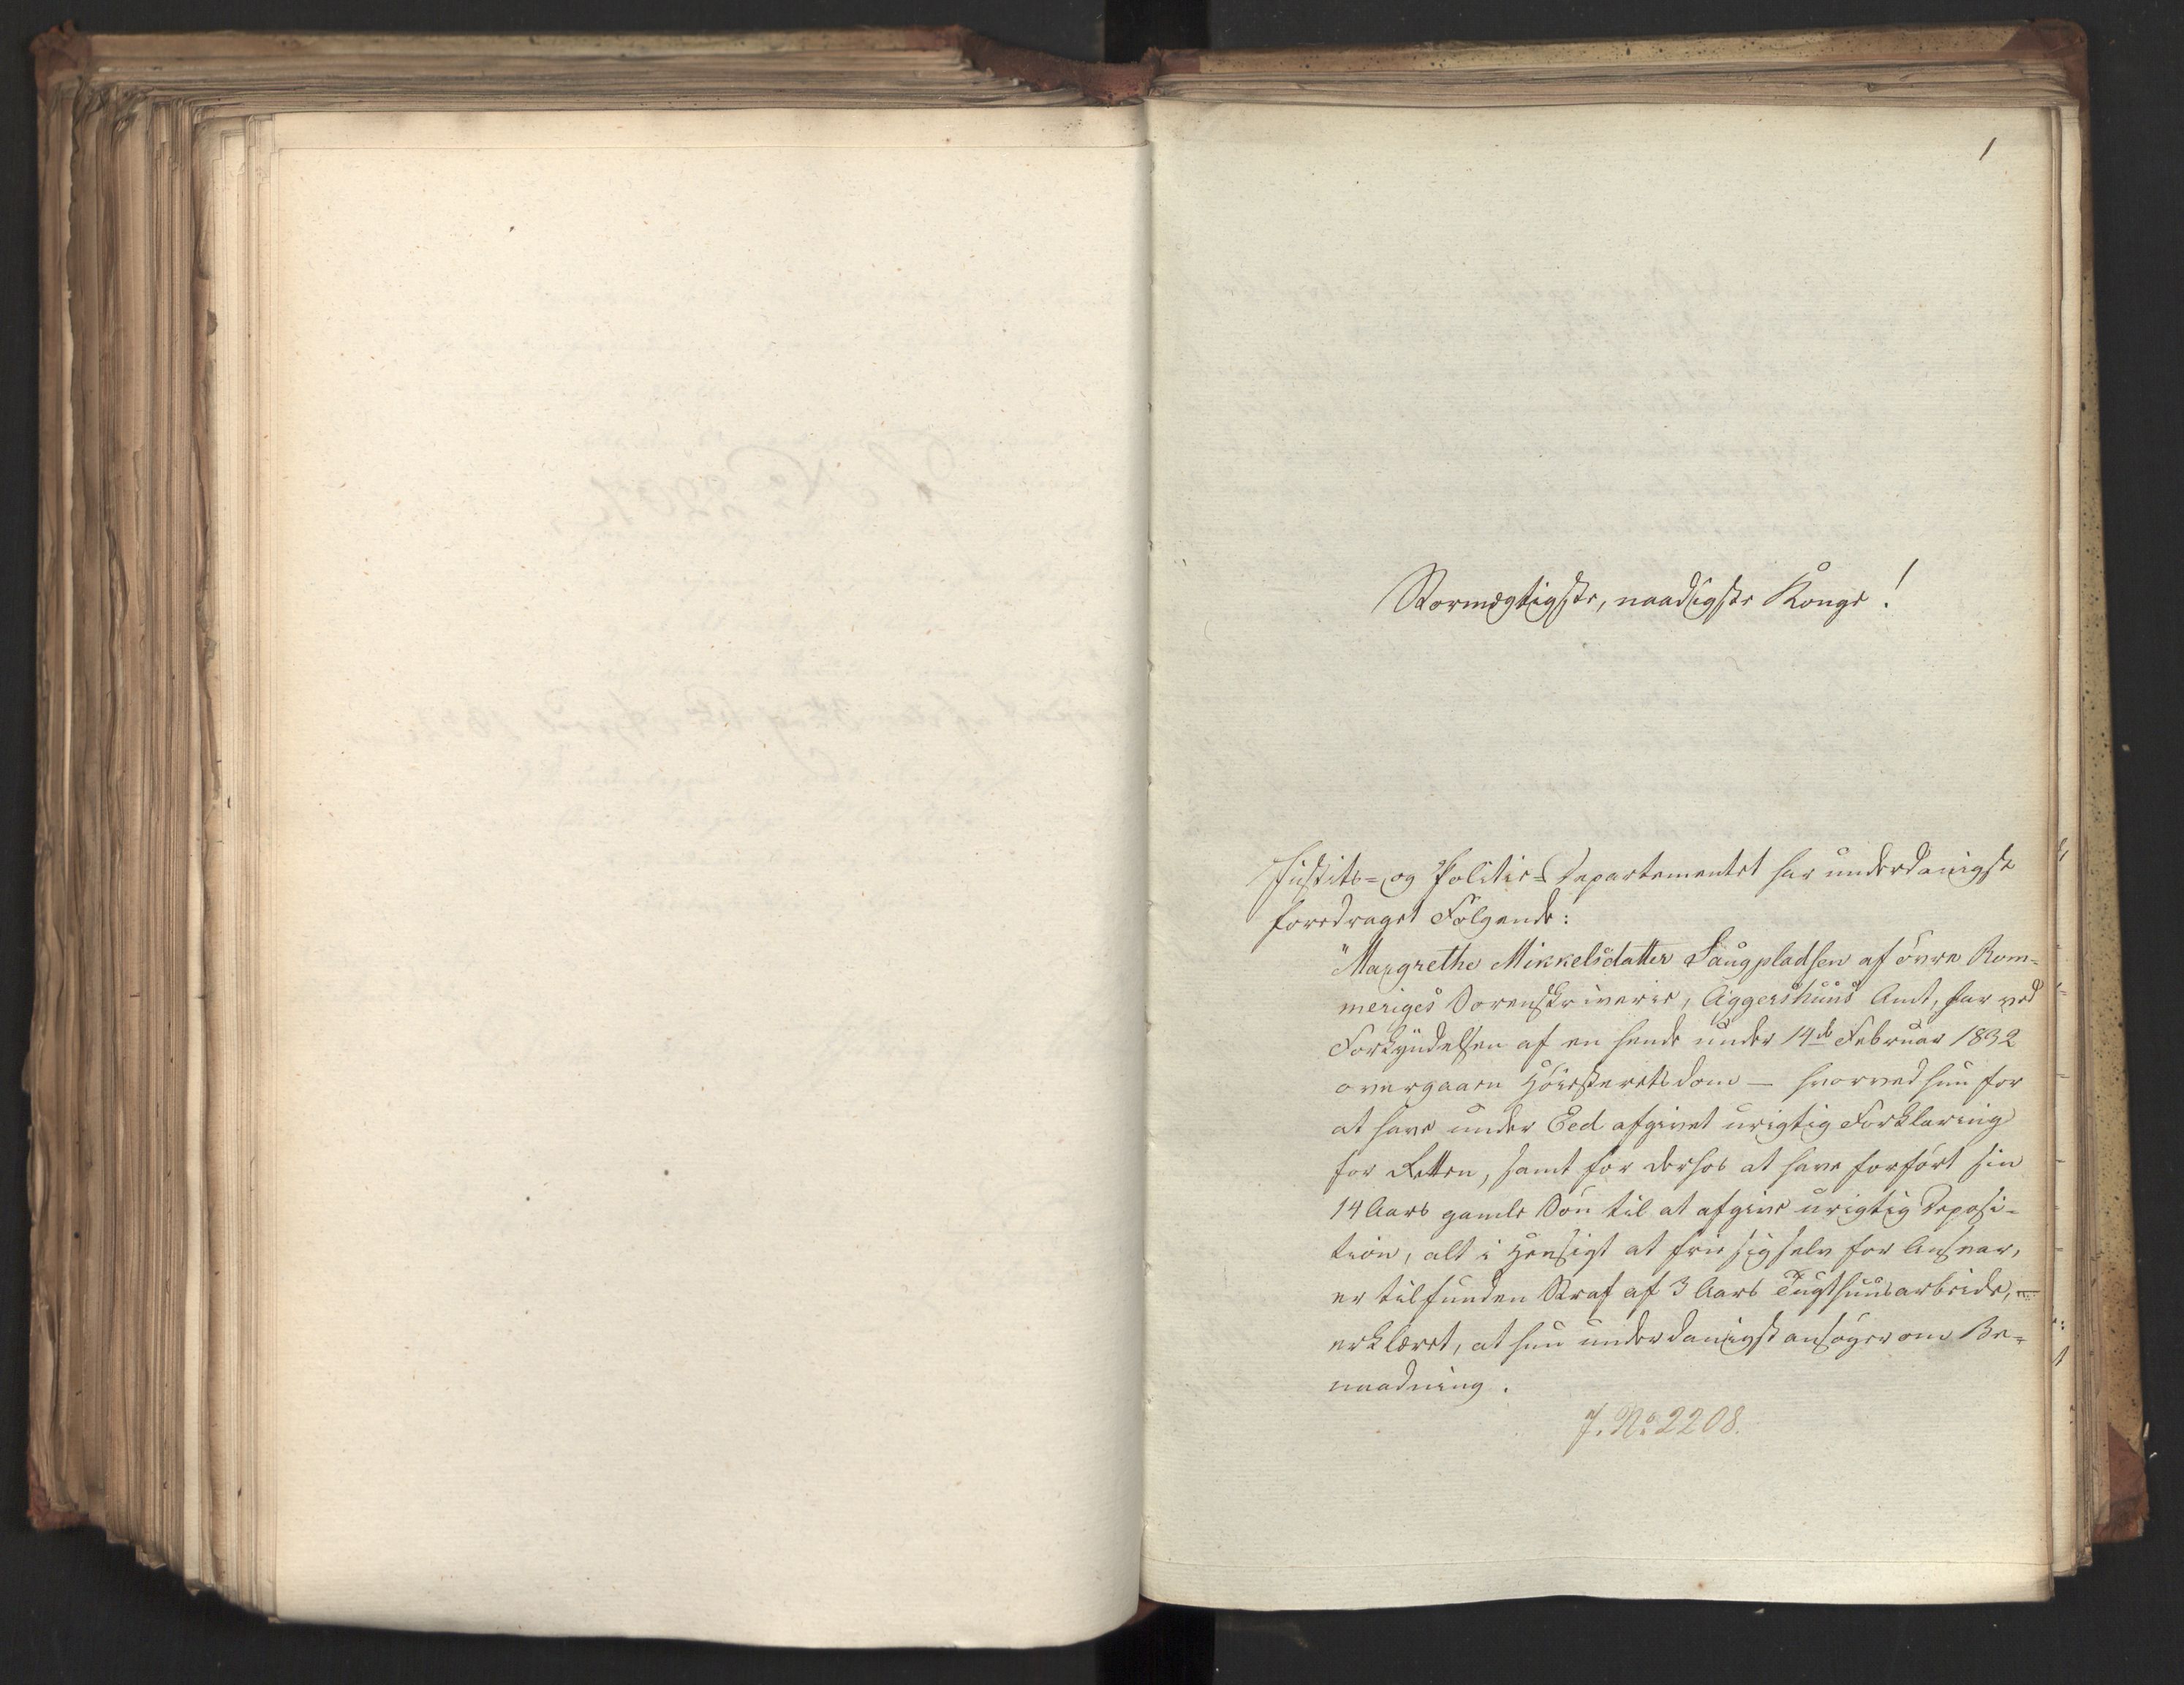 1
Stormægtigste, naadigste Konge!
Justits- og Politie-Departementet har underdanigst
foredraget Følgende:
"Margrethe Mikkelsdatter Saugpladsen af övre Rom-
meriges Sorenskriverie, Aggershuus Amt, har ved
Forkyndelsen af en hende under 14de Februar 1832
overgaaen Höiesteretsdom — hvorved hun for
at have under Eed afgivet urigtig Forklaring
for Retten, samt for derhos at have forfört sin
14 Aars gamle Sön til at afgive urigtig Deposi-
tion, alt i Hensigt at frie sig selv for Ansvar,
er tilfunden Straf af 3 Aars Tugthuusarbeide, —
erklæret, at hun underdanigst ansöger om Be-
naadning.
J. No. 2208.